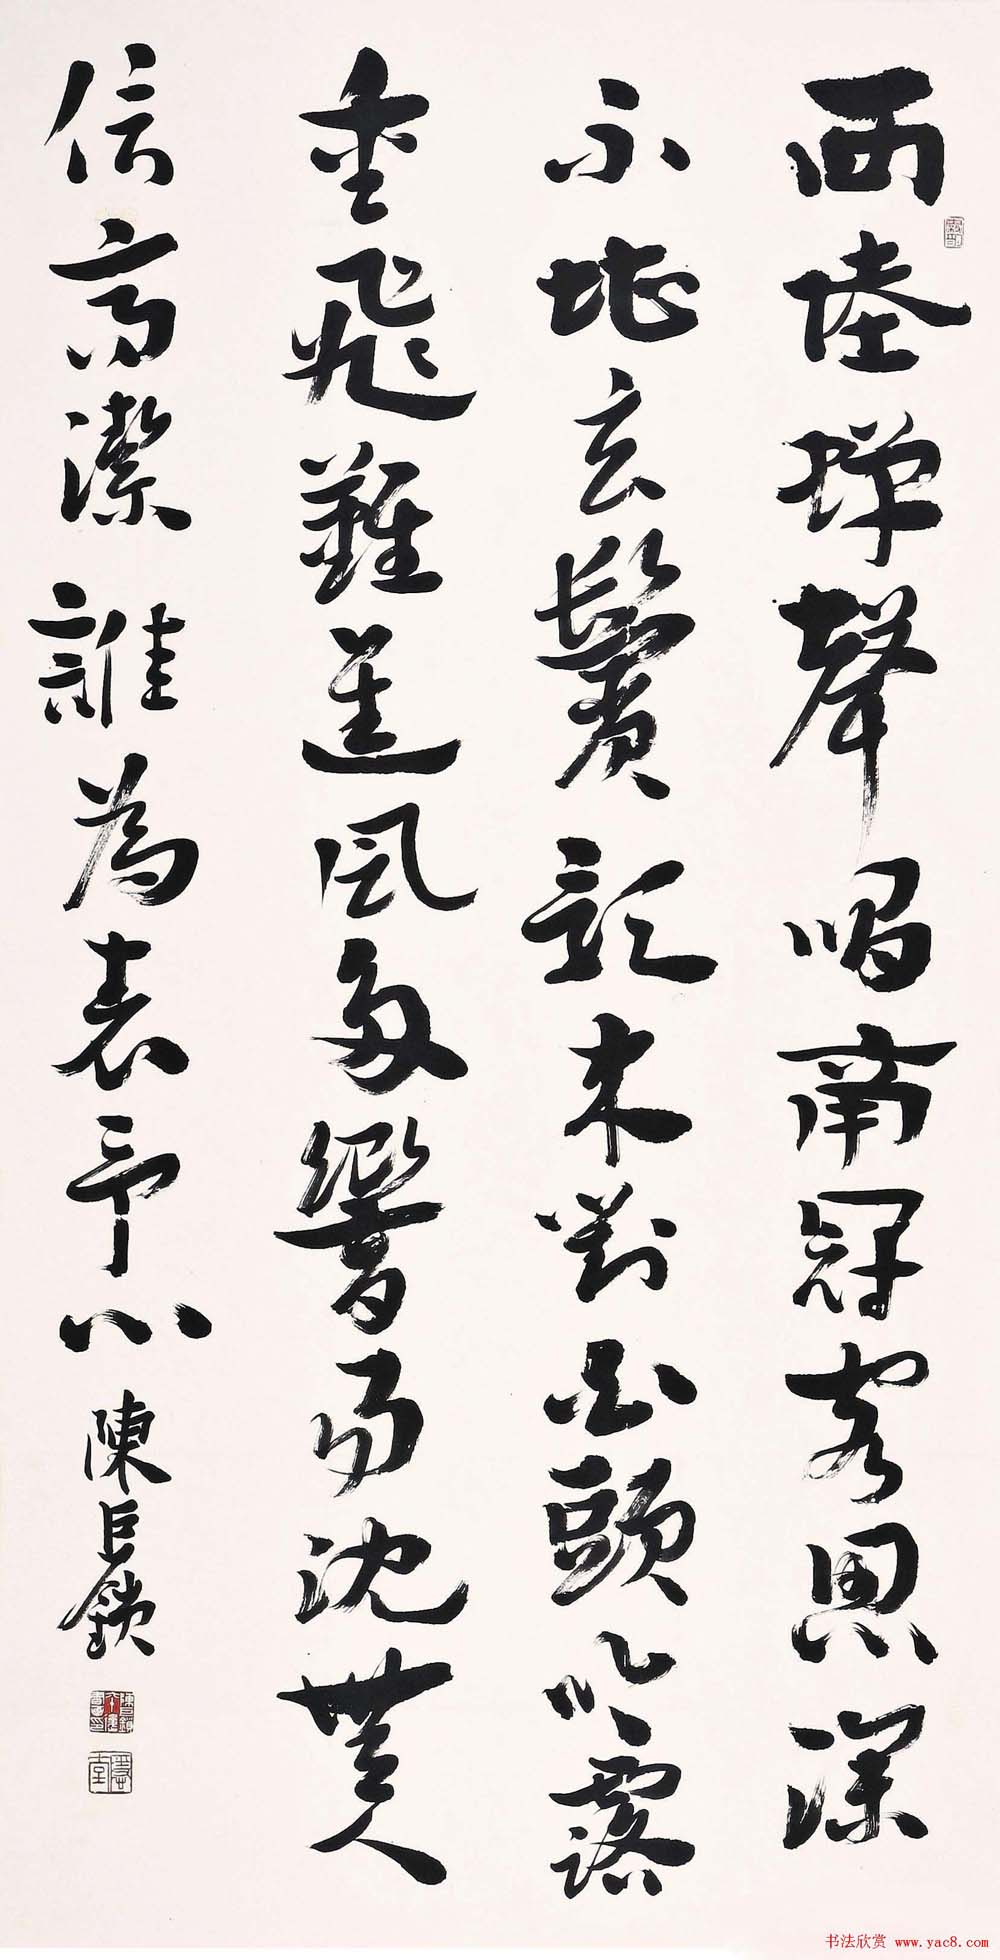 西陸蝉聲唱南冠客思深
不堪玄鬢影来對白頭吟露
重飛難進風多響易沈無人
信高潔誰為表予心
陳巨鎖
书法欣赏 www.yac8.com